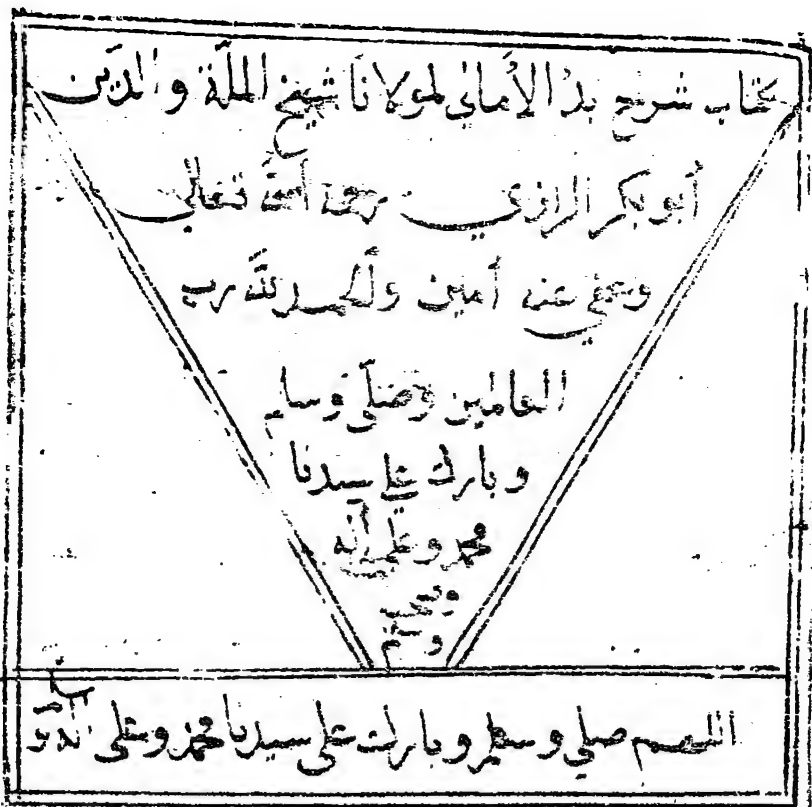 كتاب شرح بدا الأمالي لمولانا شيخ الملة والدين
أبو بكر الرازي رحمة الله تعالى
وعفي عنه أمين والحمد لله رب
العالمين وصلى وسلم
وبارك على سيدنا
محمد وعلى آله
وصحبه
وسلم
اللهم صلي وسلم وبارك على سيدنا محمد وعلى